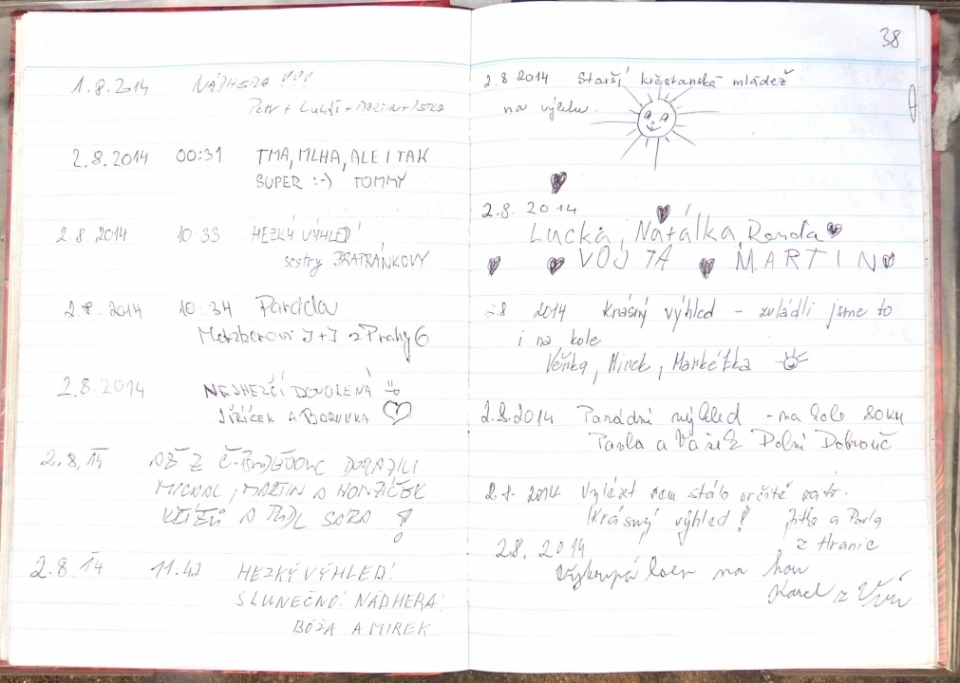 1.8.2014 NÁDHERA !!!
Petr + Lukáš +
2.8.2014 00:31 TMA, MLHA, ALE I TAK
SUPER :-) TOMMY
2.8.2014 10:33 HEZKÝ VÝHLED!
sestry BRATRÁNKOVY
2.8.2014 10:34 Paráda
J+J z Prahy 6
2.8.2014 NEJHEZČÍ DOVOLENÁ
JIŘÍČEK A BORUVKA
2.8.14 AŽ Z DORAZILI
MICHAL, MARTIN A HONZÍČEK
A
2.8.14 11.42 HEZKÝ VÝHLED!
SLUNEČNO! NÁDHERA!
BÓŽA A MIREK
38
2.8 2014 Starší křesťanská mládež
na výletu.
2.8. 2014
Lucka, Natálka, Renda
VOJTA MARTIN
2014 Krásný výhled - zvládli jsme to
i na kole
Věrka, Mirek, Markétka
2.8.2014 Parádní výhled - na kole
Pavla a Vašek Dolní Dobrouč
2.8. 2014 Vylézt sem stálo určitě zato.
Krásný výhled! Jitka a Pavla
z Hranic
2.8. 2014
na
Karel z